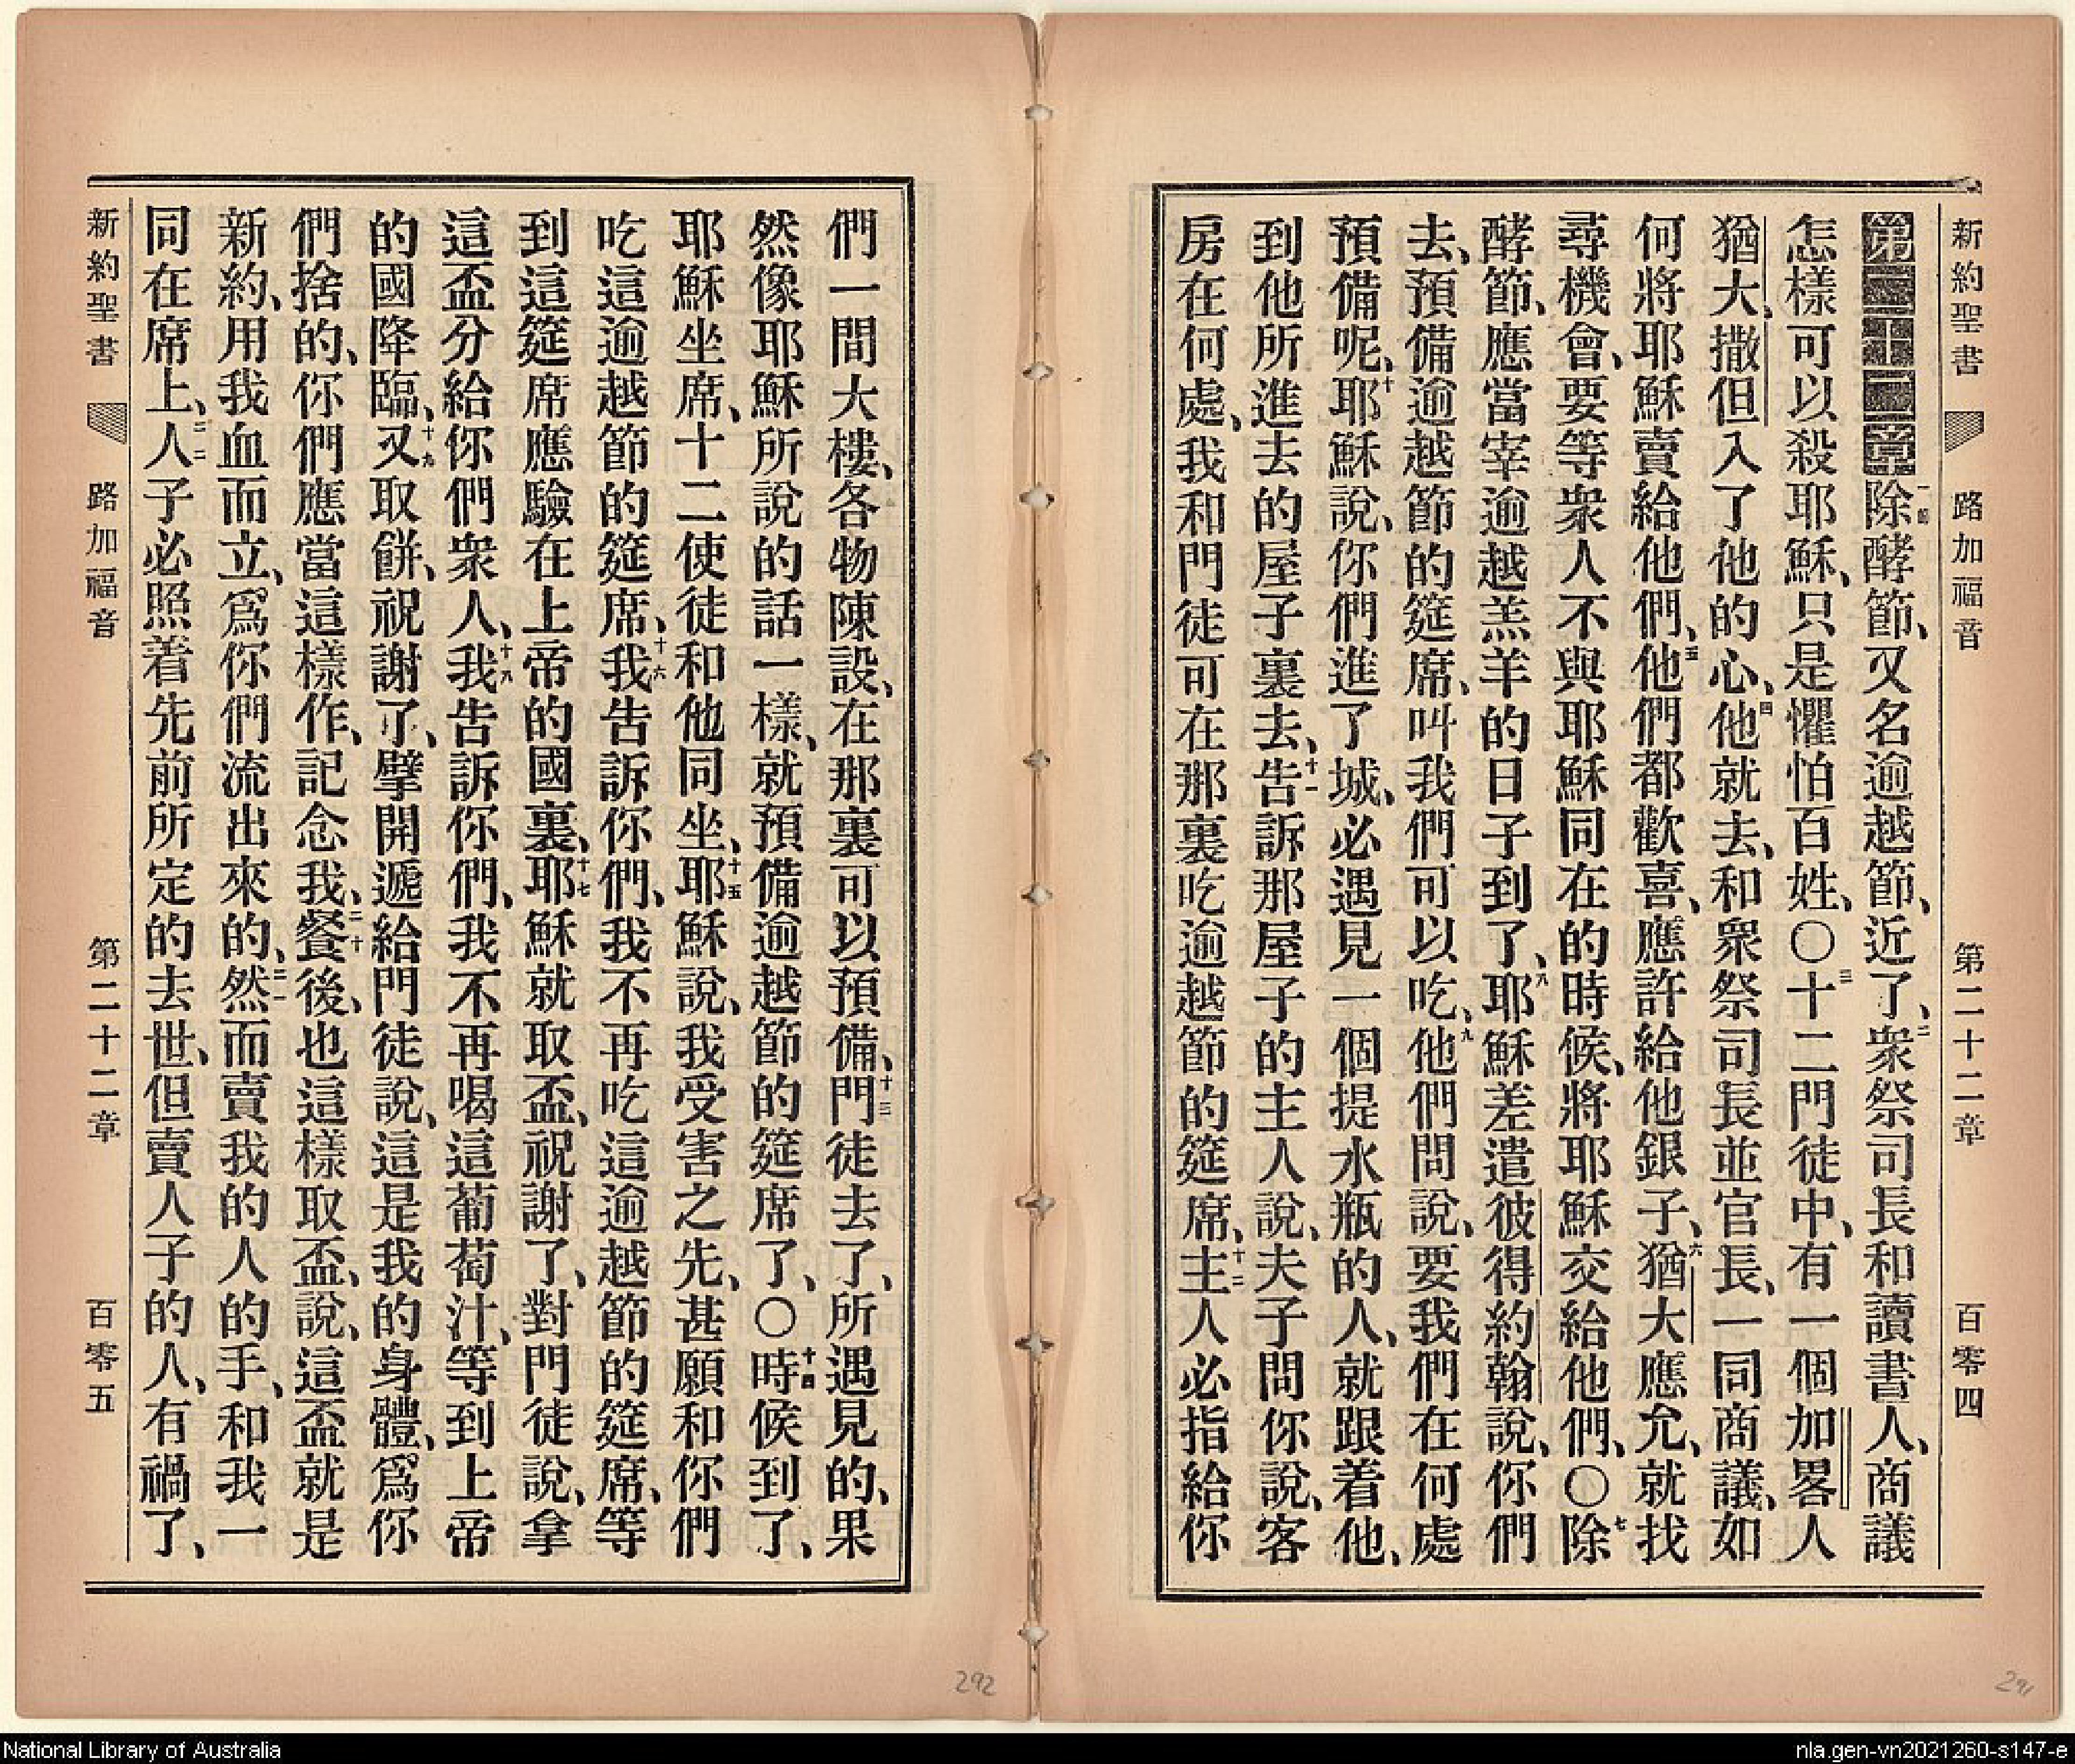 新約聖書 路加福音 第二十二章 百零四
第二十二章一節除酵節、又名逾越節、近了、二衆祭司長和讀書人、商議
怎樣可以殺耶穌、只是懼怕百姓、〇三十二門徒中、有一個加畧人
猶大、撒但入了他的心、四他就去、和衆祭司長並官長、一同商議、如
何將耶穌賣給他們、五他們都歡喜、應許給他銀子、六猶大應允、就找
尋機會、要等衆人不與耶穌同在的時候、將耶穌交給他們、〇七除
酵節、應當宰逾越羔羊的日子到了、八耶穌差遣彼得約翰說、你們
去、預備逾越節的筵席、叫我們可以吃、九他們問說、要我們在何處
預備呢、十耶穌說、你們進了城、必遇見一個提水瓶的人、就跟着他、
到他所進去的屋子裏去、十一告訴那屋子的主人說、夫子問你說、客
房在何處、我和門徒可在那裏吃逾越節的筵席、十二主人必指給你
們一間大樓、各物陳設、在那裏可以預備、十三門徒去了、所遇見的、果
然像耶穌所說的話一樣、就預備逾越節的筵席了、〇十四時候到了、
耶穌坐席、十二使徒和他同坐、十五耶穌說、我受害之先、甚願和你們
吃這逾越節的筵席、十六我告訴你們、我不再吃這逾越節的筵席、等
到這筵席應驗在上帝的國裏、十七耶穌就取盃、祝謝了、對門徒說、拿
這盃分給你們衆人、十八我告訴你們、我不再喝這葡萄汁、等到上帝
的國降臨、十九又取餅、祝謝了、擘開遞給門徒說、這是我的身體、爲你
們捨的、你們應當這樣作、記念我、二十餐後、也這樣取盃、說、這盃就是
新約、用我血而立、爲你們流出來的、二一然而賣我的人的手、和我一
同在席上、二二人子必照着先前所定的去世、但賣人子的人、有禍了、
新約聖書 路加福音 第二十二章 百零五
292
291
National Library of Australia
nla.gen-vn2021260-s147-e